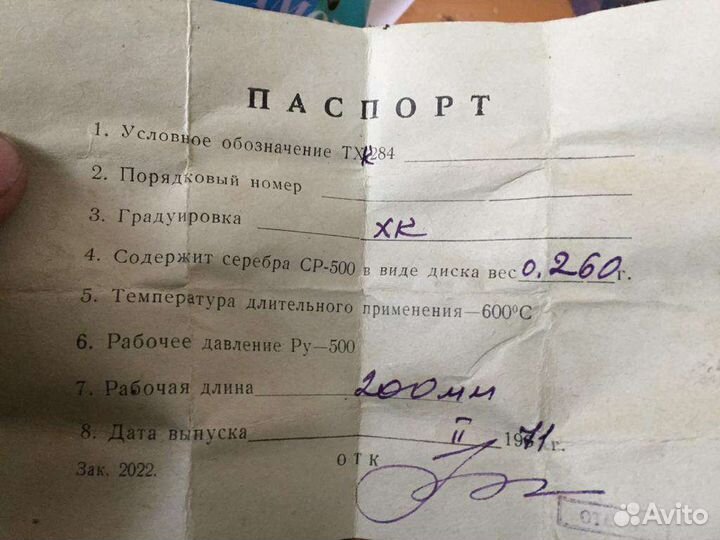 ПАСПОРТ
1. Условное обозначение ТХК284
2. Порядковый номер
3. Градуировка ХК
4. Содержит серебра СР-500 в виде диска вес 0,260 г.
5. Температура длительного применения—600°С
6. Рабочее давление Ру—500
7. Рабочая длина 200мм
8. Дата выпуска II 1971г.
Зак. 2022. ОТК
Avito